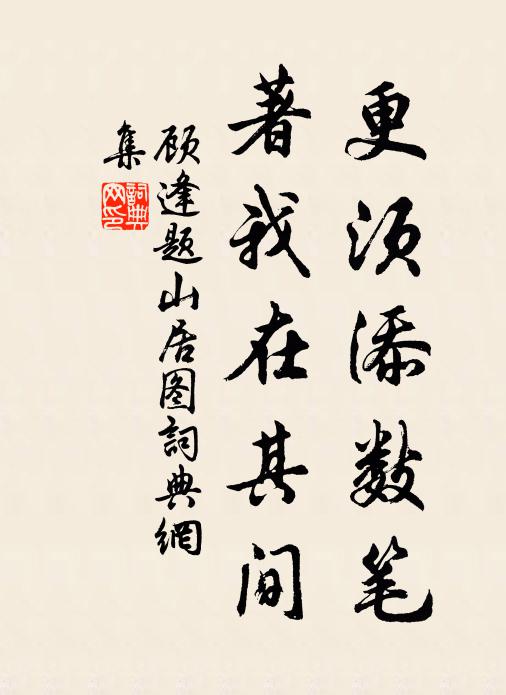 更须添数笔
著我在其间
顾逢题山居图詞典網
集
詞典
网印